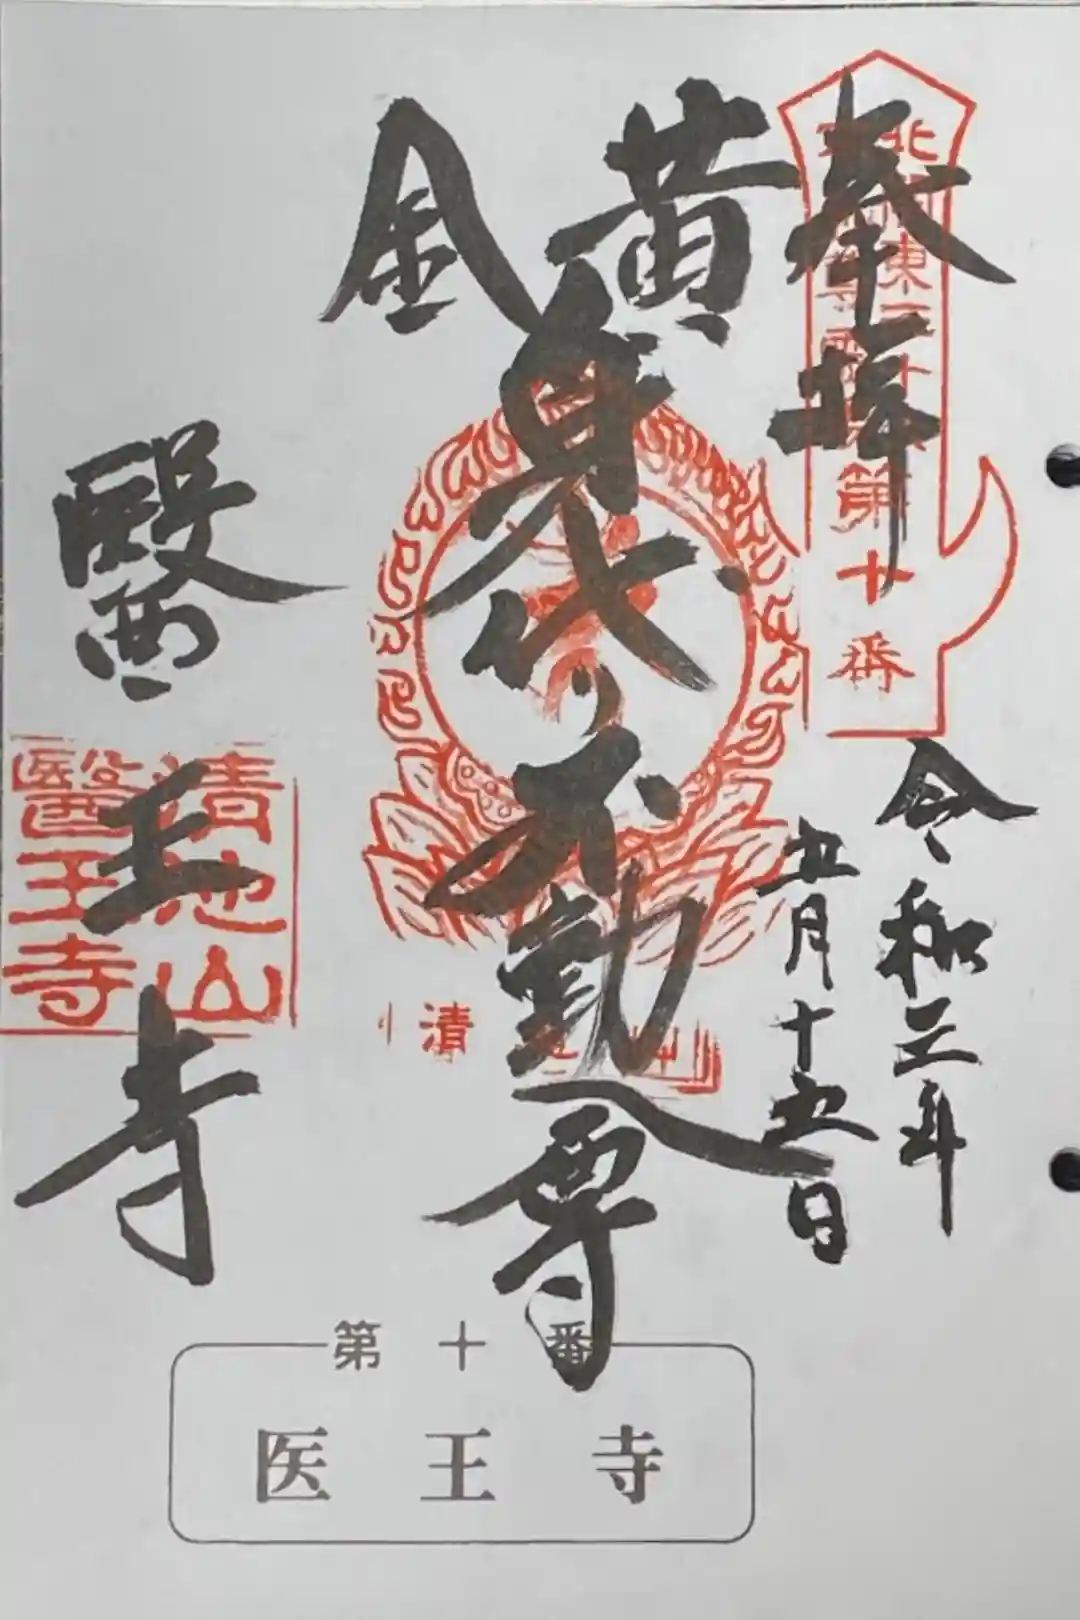 奉拝
北関東三十六
不動尊霊場
第十番
令和三年
五月十五日
黄金
身代り不動尊
醫王寺
清池山
醫王寺
清
第十番
医王寺